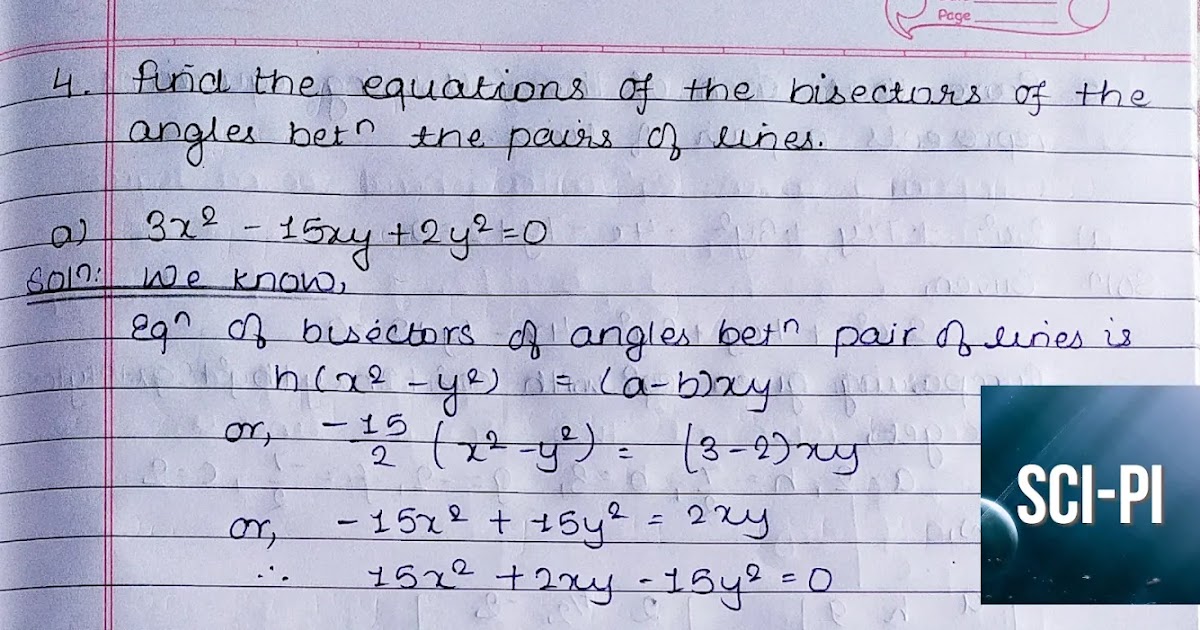 Page
4. Find the equations of the bisectors of the
angles betⁿ the pairs of lines.
a) 3x² - 15xy + 2y² = 0
Solⁿ: We know,
Eqⁿ of bisectors of angles betⁿ pair of lines is
h(x² - y²) = (a-b)xy
or, -15/2 (x² - y²) = (3-2)xy
or, -15x² + 15y² = 2xy
∴ 15x² + 2xy - 15y² = 0
SCI-PI